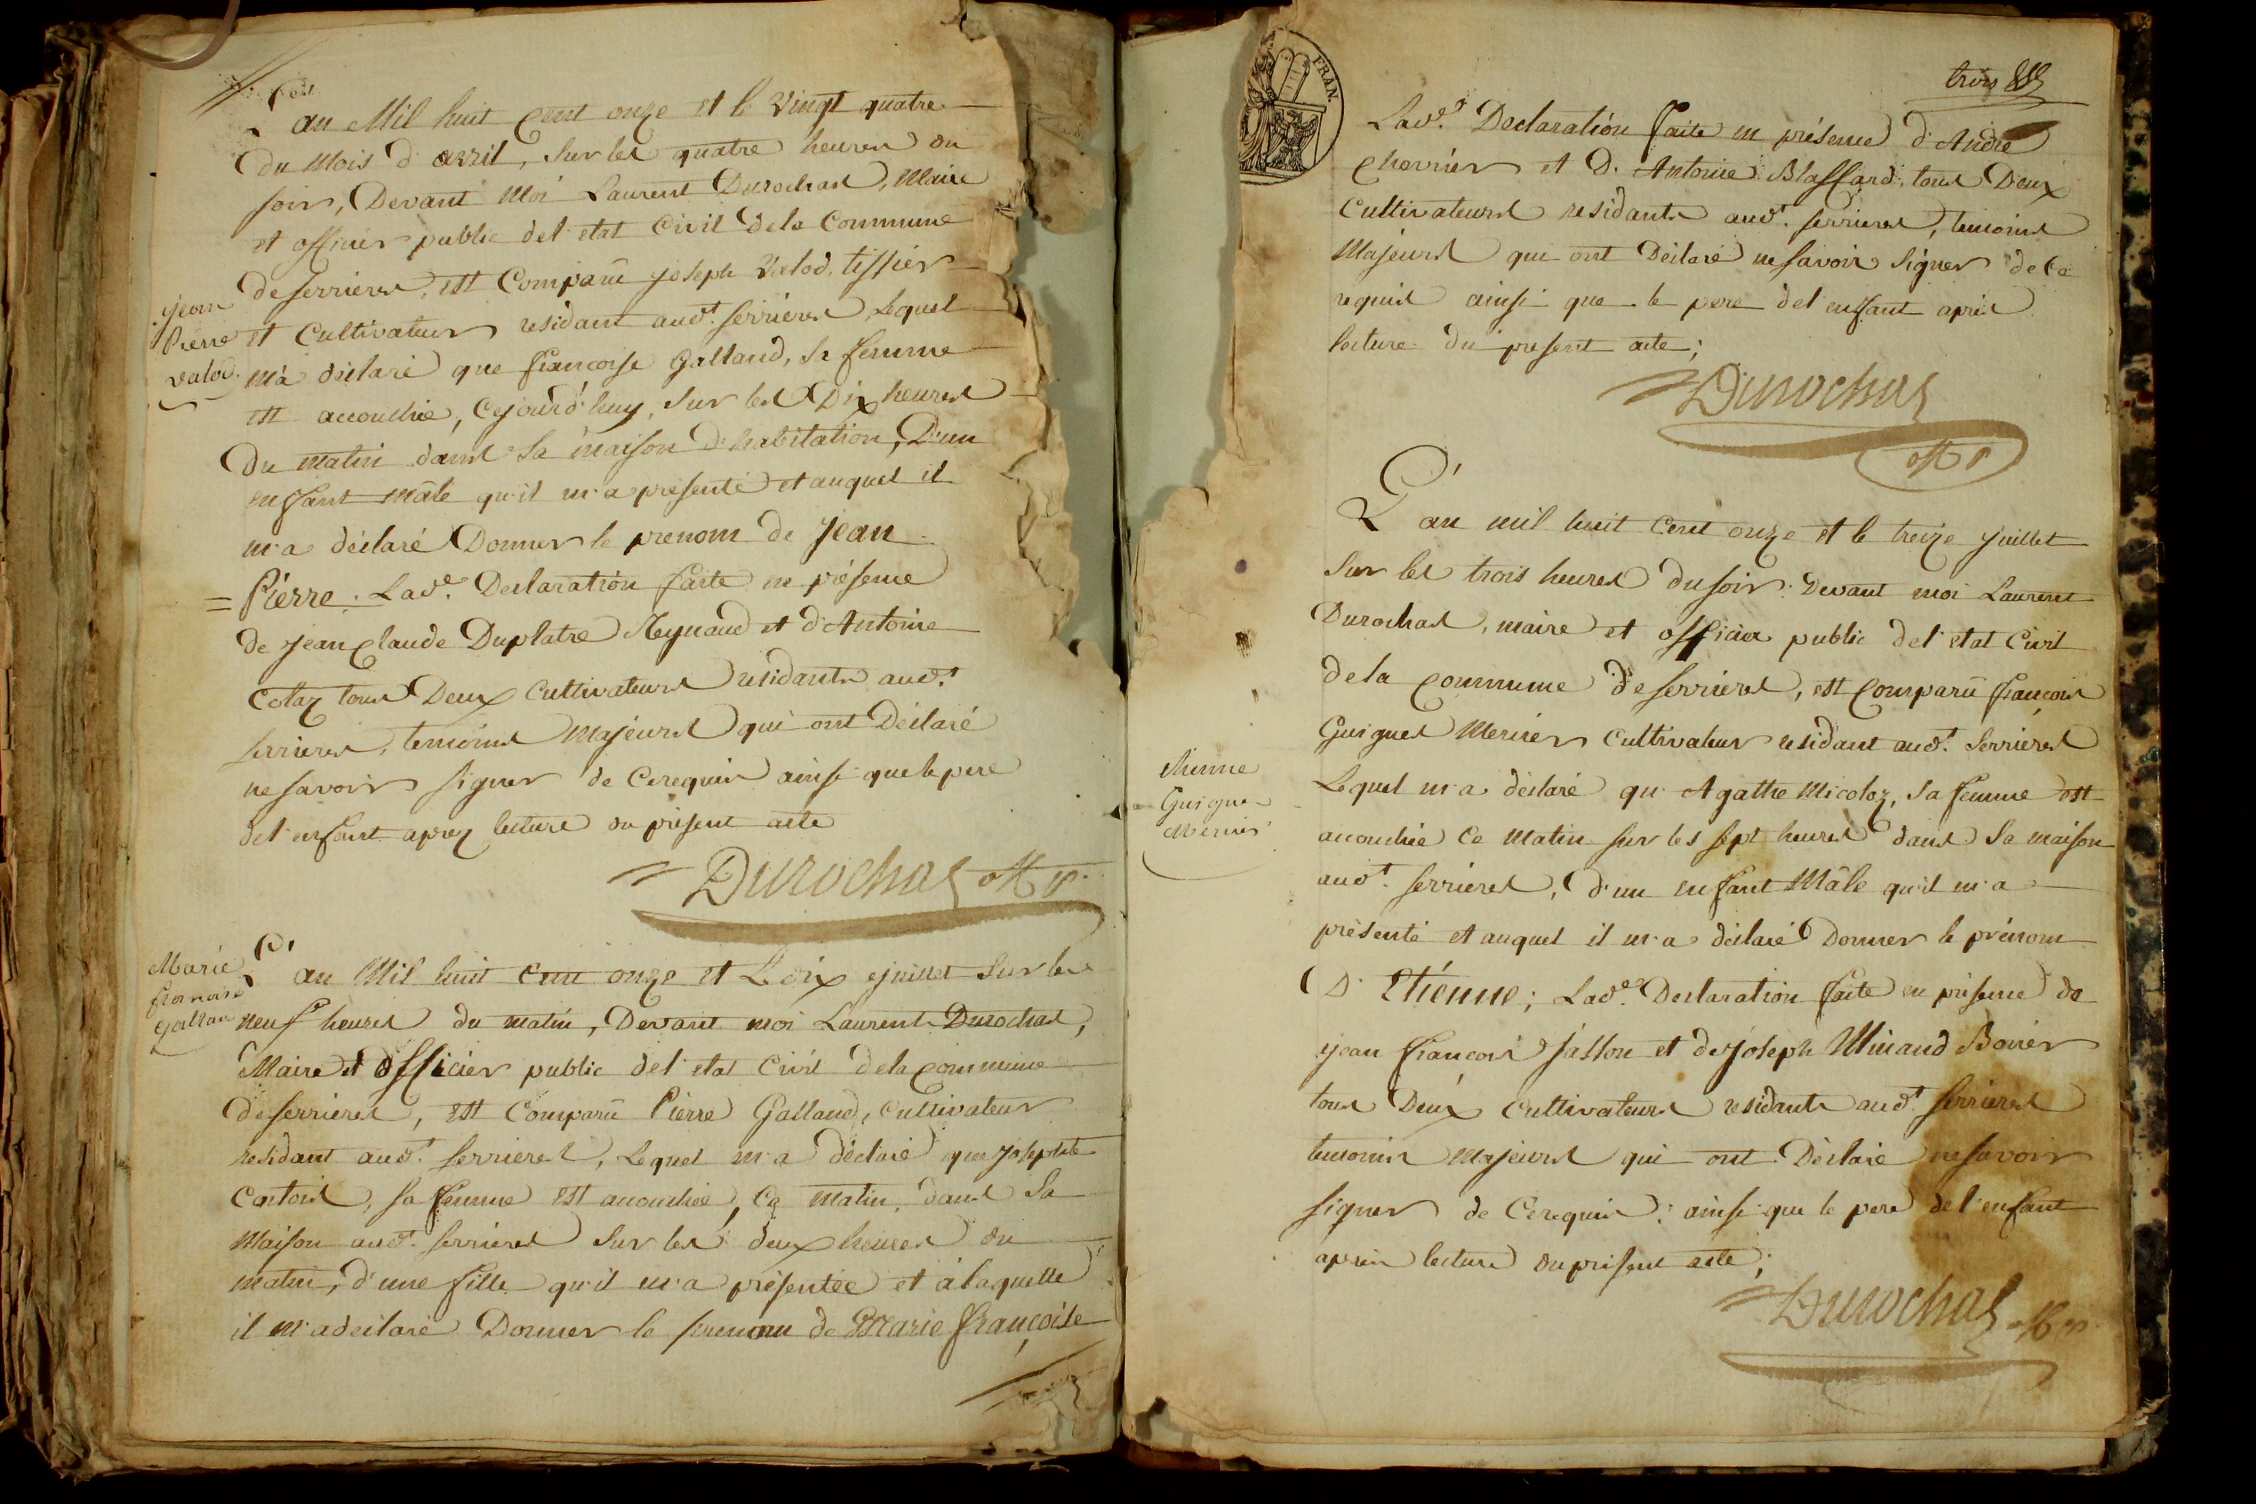 L'an Mil huit Cent onze et le Vingt quatre
Du Mois d'avril, sur les quatre heures du
soir, Devant Moi Laurent Durochas, Maire
et officier public de l'etat Civil de la Commune
de serrieres, est Comparû joseph Valod, tissier
jean
Pierre
valod.
et Cultivateur residant aud.t serrieres Lequel
m'a déclaré que francoise Galland, sa femme
est accouchée, Cejourd'huy, sur les Dix heures
Du matin dans sa maison d'habitation, D'un
enfant mâle qu'il m'a présenté et auquel il
m'a déclaré Donner le prenom de Jean
= Pierre. Lad.e Declaration faite en présence
de jean Claude Duplatre Reynaud et d'Antoine
Cotaz tous Deux Cultivateurs residants aud.t
serrieres, temoins Majeurs qui ont Déclaré
ne savoir signer de Cerequis ainsi que le pere
de l'enfant aprez lecture du présent acte
Durochas M P.
Marie
francoise
Gallan
L'an Mil huit Cent onze et Le dix juillet Sur les
neuf heures du matin, Devant moi Laurent Durochas,
Maire et Officier public de l'etat Civil de la Commune
de serrieres, est Comparû Pierre Galland, Cultivateur
residant aud.t serrieres, Lequel m'a déclaré que josephte
Contois, sa femme est accouchée, Ce matin, dans Sa
Maison aud.t serrieres Sur les deux heures du
matin, d'une fille qu'il m'a présentée et à laquelle
il m'a déclaré Donner le prenom de Marie françoise
FRAN.
trois
Lad.e Declaration faite en présence d'André
Chevrier et D. Antoine Blaffard, tous Deux
Cultivateurs residants aud.t serrieres, temoins
Majeurs qui ont Déclaré ne savoir signer de Ce
requis ainsi que le pere de l'enfant aprés
lecture du present acte;
Durochas
M P
L'an mil huit Cent onze et le treize juillet
Sur les trois heures du soir: Devant moi Laurent
Durochas, maire et officier public de l'etat Civil
de la Commune de serrieres, est Comparû françois
Guigues Mernier Cultivateur residant aud.t Serrieres
etienne
Guigues
Mernier
Lequel m'a déclaré qu'Agathe Micoloz, sa femme est
accouchée Ce matin sur les sept heures dans Sa maison
aud.t serrieres, d'un enfant Mâle qu'il m'a
présenté et auquel il m'a déclaré Donner le prénom
D'Etienne; Lad.e Declaration faite en présence de
jean françois jasson et de joseph Minaud Boirier
tous Deux Cultivateurs residants aud.t serrieres
temoins Majeurs qui ont Déclaré ne savoir
signer de Cerequis: ainsi que le pere de l'enfant
aprés lecture du présent acte;
Durochas M P